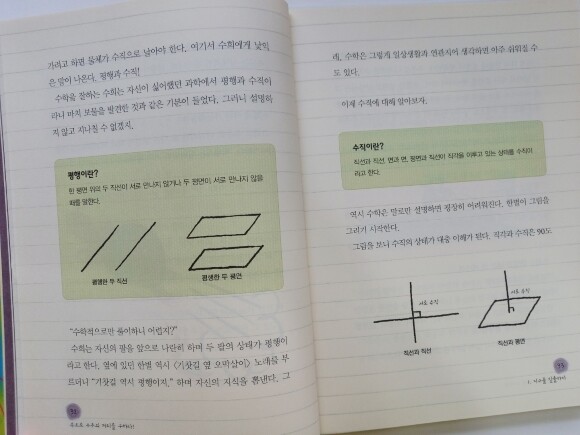 가려고 하면 물체가 수직으로 날아야 한다. 여기서 수희에게 낯익
은 말이 나온다. 평행과 수직!
수학을 잘하는 수희는 자신이 싫어했던 과학에서 평행과 수직이
라니 마치 보물을 발견한 것과 같은 기분이 들었다. 그러니 설명하
지 않고 지나칠 수 없겠지.
평행이란?
한 평면 위의 두 직선이 서로 만나지 않거나 두 평면이 서로 만나지 않을
때를 말한다.
평행한 두 직선
평행한 두 평면
"수학적으로만 풀이하니 어렵지?"
수희는 자신의 팔을 앞으로 나란히 하며 두 팔의 상태가 평행이
라고 한다. 옆에 있던 한별 역시 〈기찻길 옆 오막살이〉 노래를 부
르더니 "기찻길 역시 평행이지." 하며 자신의 지식을 뽐낸다. 그
래, 수학은 그렇게 일상생활과 연관지어 생각하면 아주 쉬워질 수
도 있다.
이제 수직에 대해 알아보자.
수직이란?
직선과 직선, 면과 면, 평면과 직선이 직각을 이루고 있는 상태를 수직이
라고 한다.
역시 수학은 말로만 설명하면 굉장히 어려워진다. 한별이 그림을
그리기 시작한다.
그림을 보니 수직의 상태가 대충 이해가 된다. 직각과 수직은 90도
서로 수직
직선과 직선
서로 수직
직선과 평면